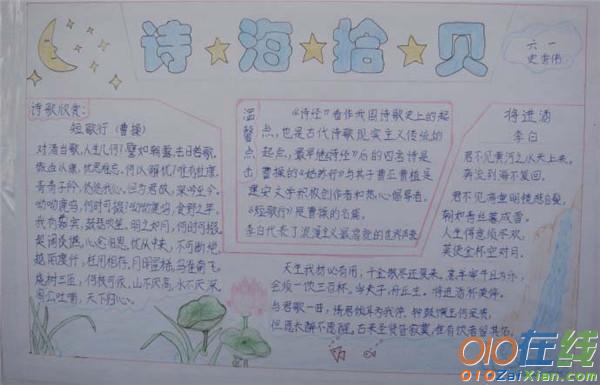 诗海拾贝
六一
诗歌欣赏:
短歌行(曹操)
对酒当歌,人生几何?譬如朝露,去日苦多。
慨当以慷,忧思难忘。何以解忧?唯有杜康。
青青子衿,悠悠我心。但为君故,沉吟至今。
呦呦鹿鸣,食野之苹。
我有嘉宾,鼓瑟吹笙。明明如月,何时可掇?
忧从中来,不可断绝。
越陌度阡,枉用相存。
月明星稀,乌鹊南飞。
绕树三匝,何枝可依。山不厌高,水不厌深。
周公吐哺,天下归心。
温馨点击
《诗经》看作我国诗歌史上的起
点,也是古代诗歌现实主义传统的
起点,最早继《诗经》后的四言诗是
曹操的
建安文学积极创作者和热心倡导者。
《短歌行》是曹操的名篇。
李白代表了浪漫主义最高
将进酒
李白
君不见黄河之水天上来,
奔流到海不复回。
君不见高堂明镜悲白发,
朝如青丝暮成雪。
人生得意须尽欢,
莫使金杯空对月。
天生我材必有用,千金散尽还复来。烹羊宰牛且为乐,
会须一饮三百杯。岑夫子,丹丘生。将进酒杯莫停。
与君歌一曲,请君 钟鼓馔玉何足贵,
但愿长醉不愿醒。古来圣贤皆寂寞,惟有饮者留其名。
010在线
010ZaiXian.com